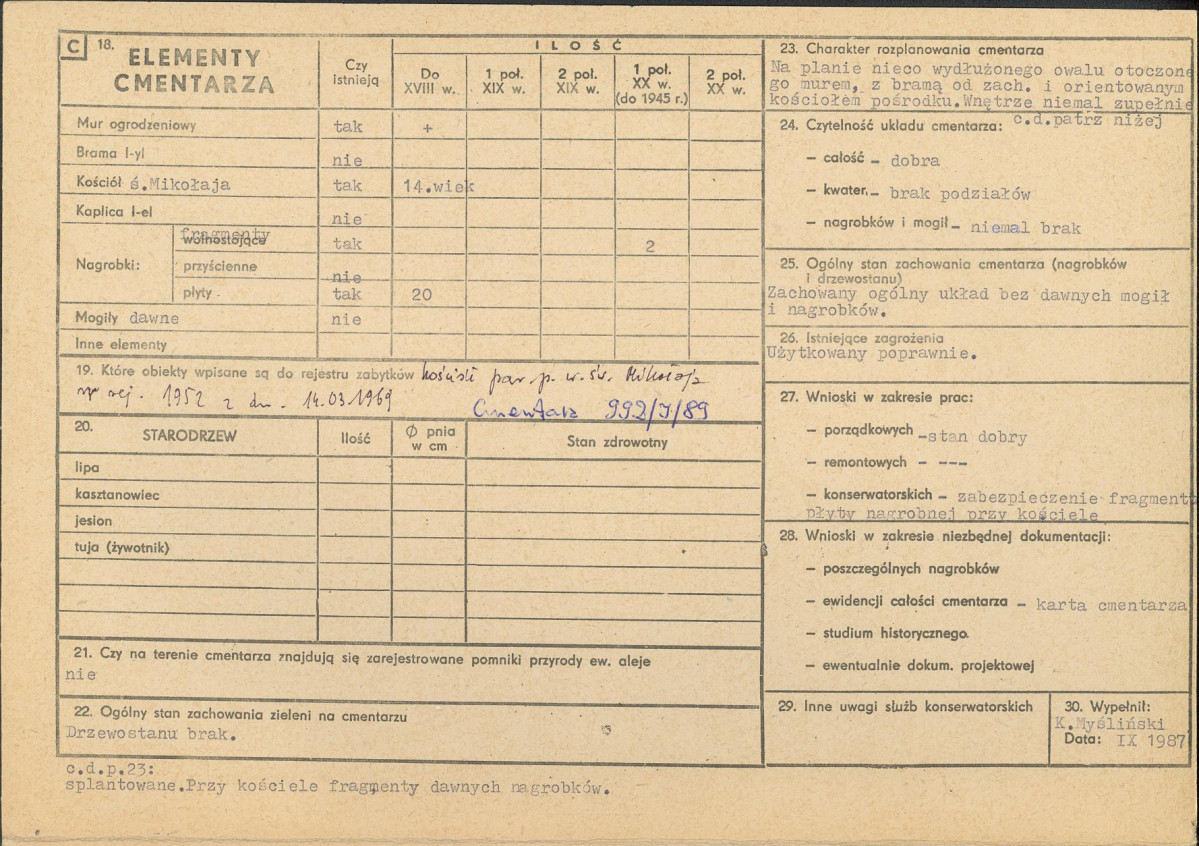 C 18. ELEMENTY CMENTARZA
Czy istnieją
ILOŚĆ
Do XVIII w.
1 poł. XIX w.
2 poł. XIX w.
1 poł. XX w. (do 1945 r.)
2 poł. XX w.
Mur ogrodzeniowy tak +
Brama I-yl nie
Kościół ś.Mikołaja tak 14.wiek
Kaplica I-el nie
Nagrobki: fragmenty wolnostojące tak 2
przyścienne nie
płyty tak 20
Mogiły dawne nie
Inne elementy
19. Które obiekty wpisane są do rejestru zabytków kościół par. p. w. św. Mikołaja
nr rej. 1952 z dn. 14.03.1969
Cmentarz 992/J/89
20. STARODRZEW Ilość Ø pnia w cm Stan zdrowotny
lipa
kasztanowiec
jesion
tuja (żywotnik)
21. Czy na terenie cmentarza znajdują się zarejestrowane pomniki przyrody ew. aleje
nie
22. Ogólny stan zachowania zieleni na cmentarzu
Drzewostanu brak.
c.d.p.23:
splantowane.Przy kościele fragmenty dawnych nagrobków.
23. Charakter rozplanowania cmentarza
Na planie nieco wydłużonego owalu otoczone
go murem, z bramą od zach. i orientowanym
kościołem pośrodku.Wnętrze niemal zupełnie
c.d.patrz niżej
24. Czytelność układu cmentarza:
– całość – dobra
– kwater. – brak podziałów
– nagrobków i mogił – niemal brak
25. Ogólny stan zachowania cmentarza (nagrobków
i drzewostanu)
Zachowany ogólny układ bez dawnych mogił
i nagrobków.
26. Istniejące zagrożenia
Użytkowany poprawnie.
27. Wnioski w zakresie prac:
– porządkowych -stan dobry
– remontowych – ---
– konserwatorskich – zabezpieczenie fragmentu
płyty nagrobnej przy kościele
28. Wnioski w zakresie niezbędnej dokumentacji:
– poszczególnych nagrobków
– ewidencji całości cmentarza – karta cmentarza
– studium historycznego.
– ewentualnie dokum. projektowej
29. Inne uwagi służb konserwatorskich
30. Wypełnił:
K.Myśliński
Data: IX 1987